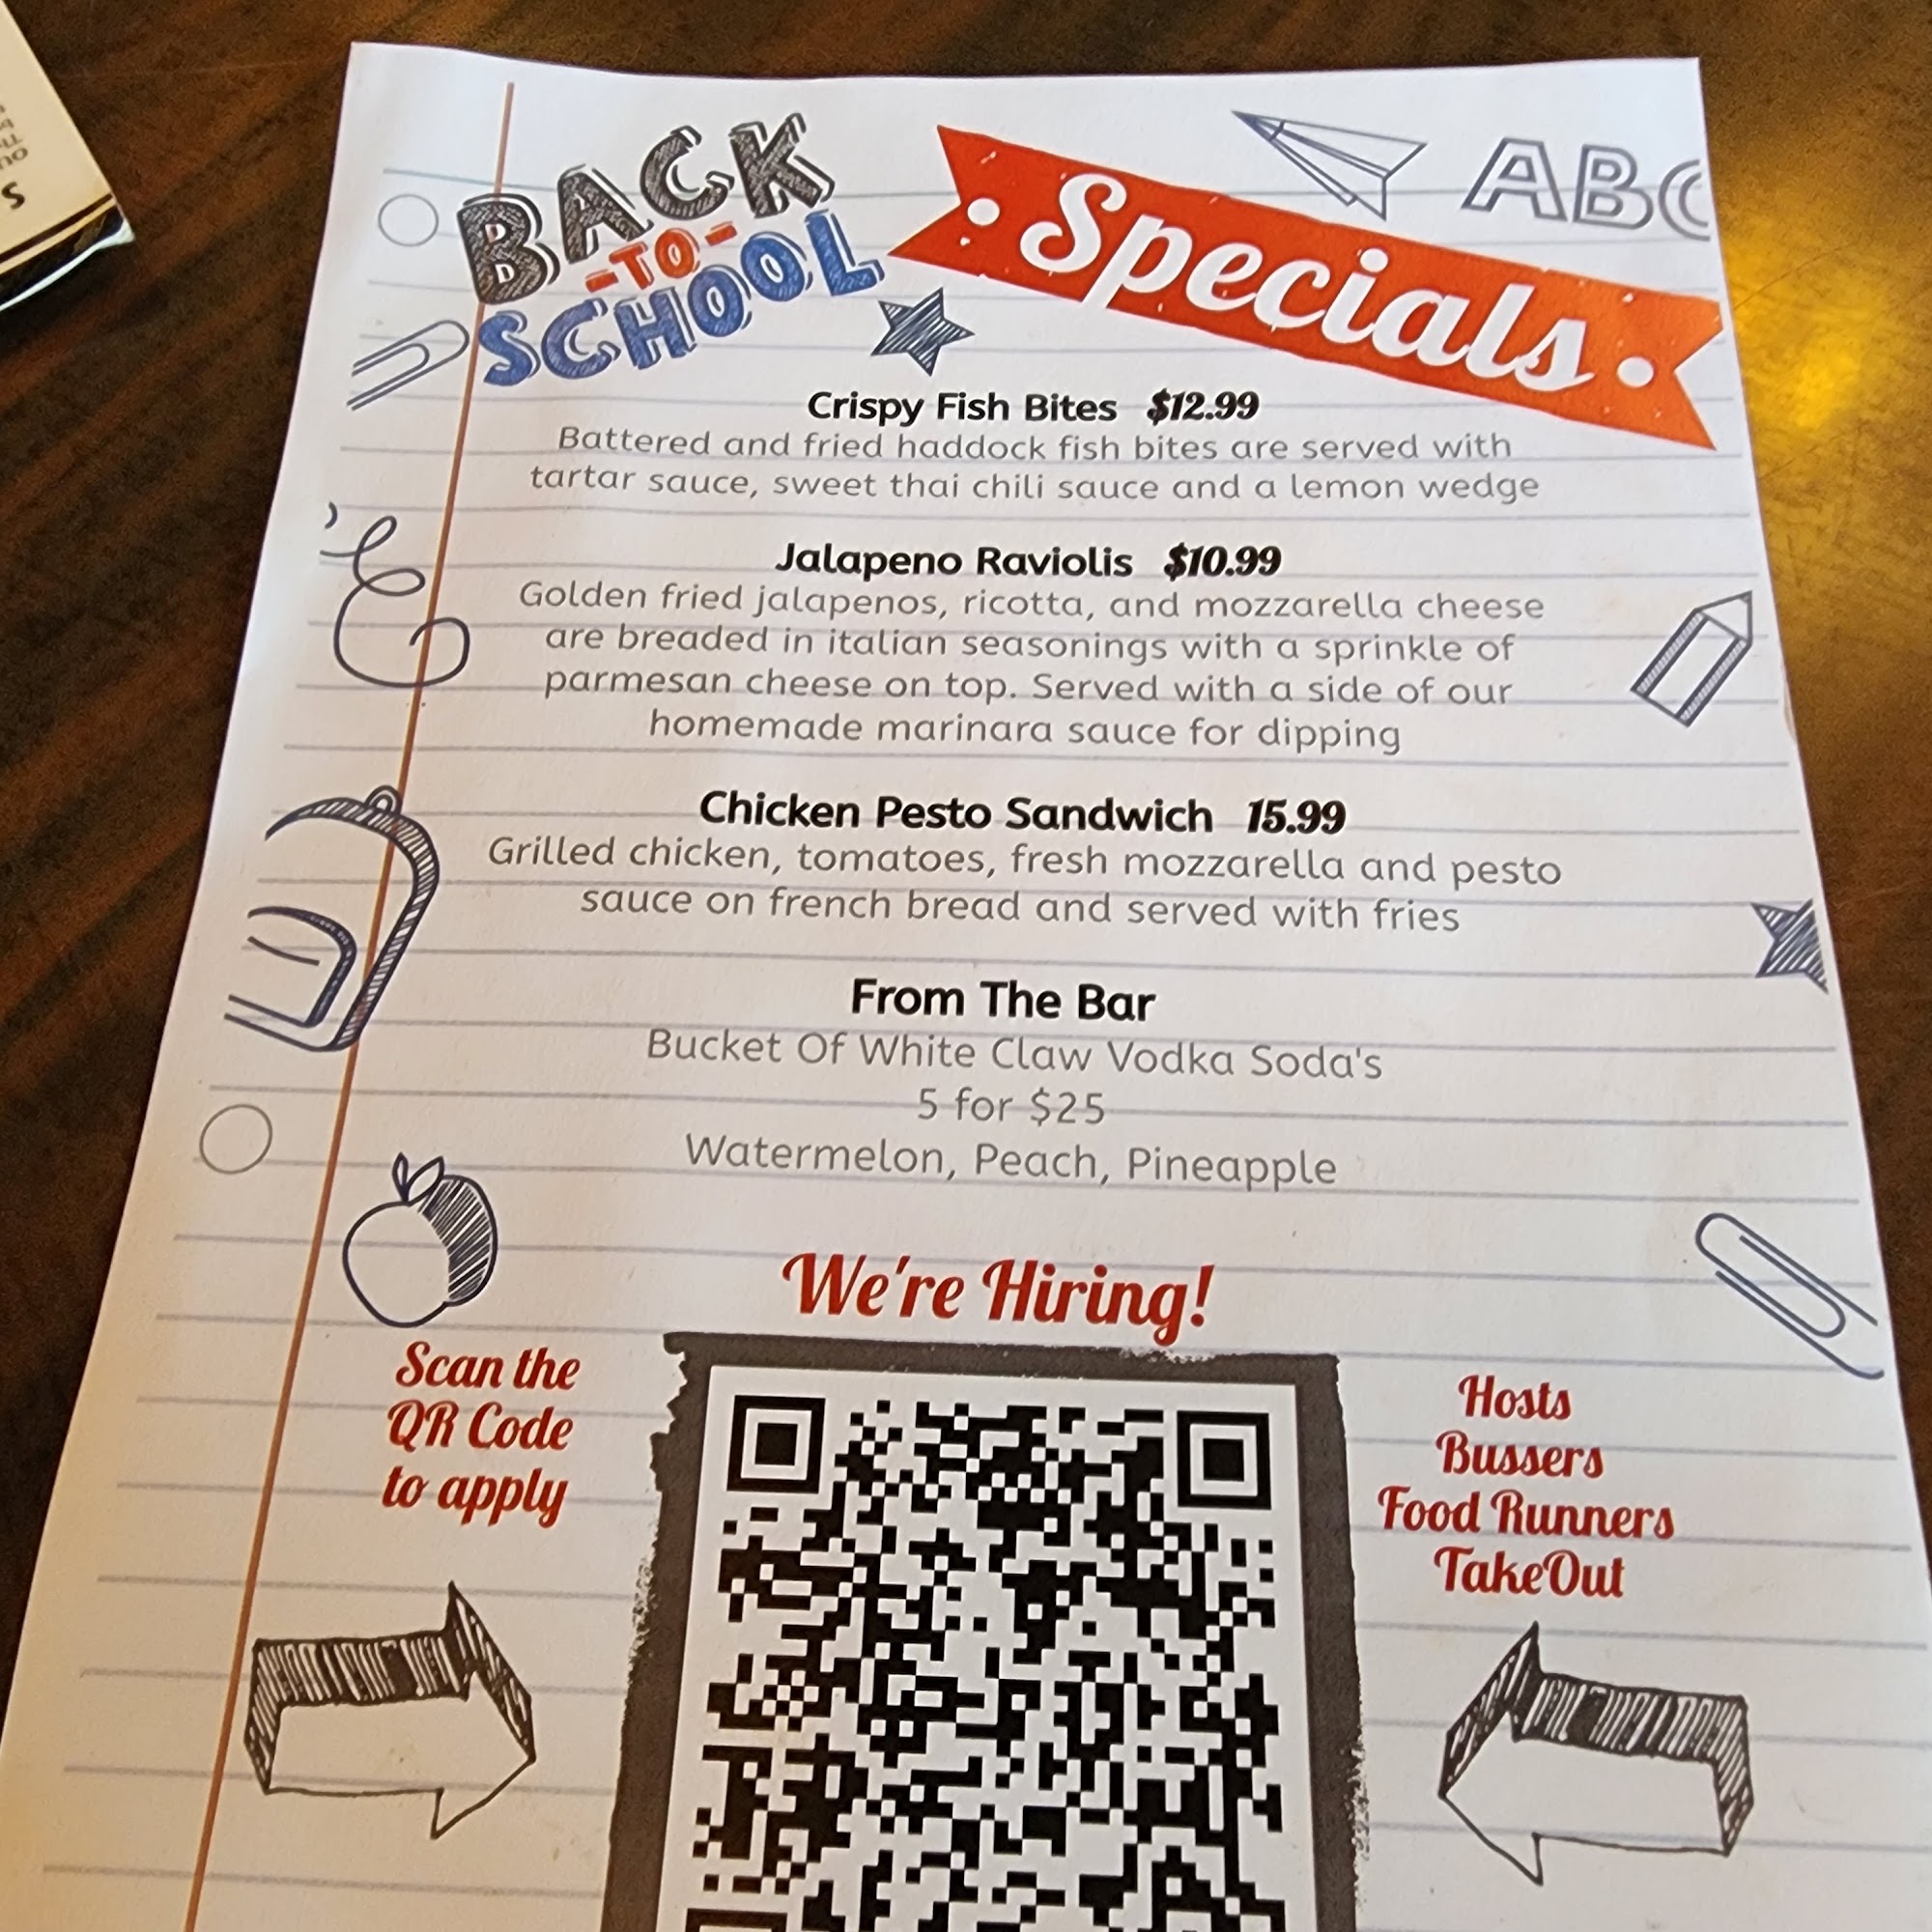 BACK
-TO-
SCHOOL
Specials
ABC
Crispy Fish Bites $12.99
Battered and fried haddock fish bites are served with
tartar sauce, sweet thai chili sauce and a lemon wedge
Jalapeno Raviolis $10.99
Golden fried jalapenos, ricotta, and mozzarella cheese
are breaded in italian seasonings with a sprinkle of
parmesan cheese on top. Served with a side of our
homemade marinara sauce for dipping
Chicken Pesto Sandwich 15.99
Grilled chicken, tomatoes, fresh mozzarella and pesto
sauce on french bread and served with fries
From The Bar
Bucket Of White Claw Vodka Soda's
5 for $25
Watermelon, Peach, Pineapple
We're Hiring!
Scan the
QR Code
to apply
Hosts
Bussers
Food Runners
TakeOut